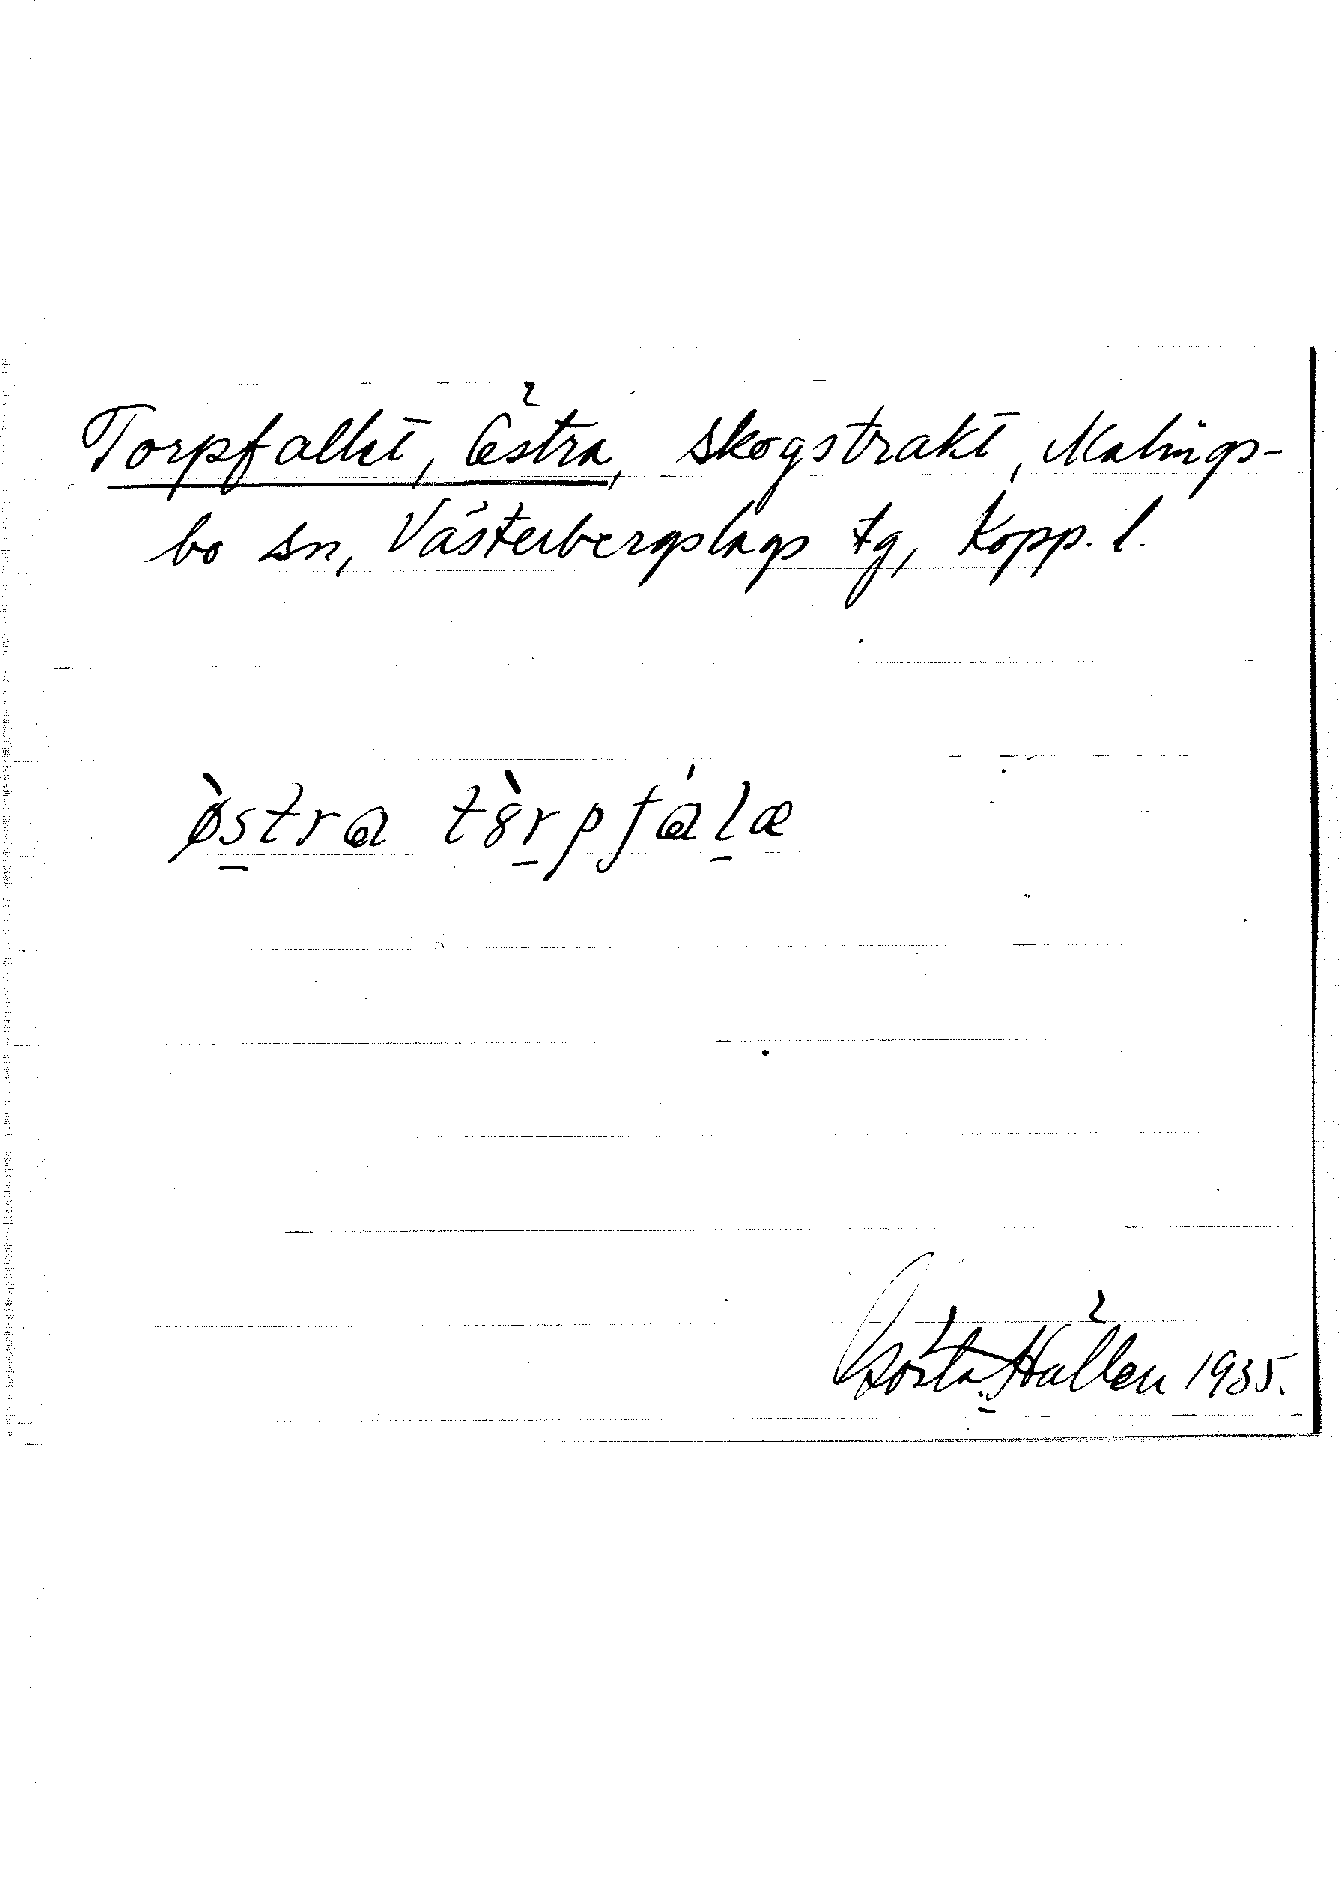 Torpfallet, Östra, skogstrakt, Malings-
bo sn, Västerbergslags tg, Kopp. l.
ø̀stra tȯ̀rpfálæ
Gösta Hållen 1935.